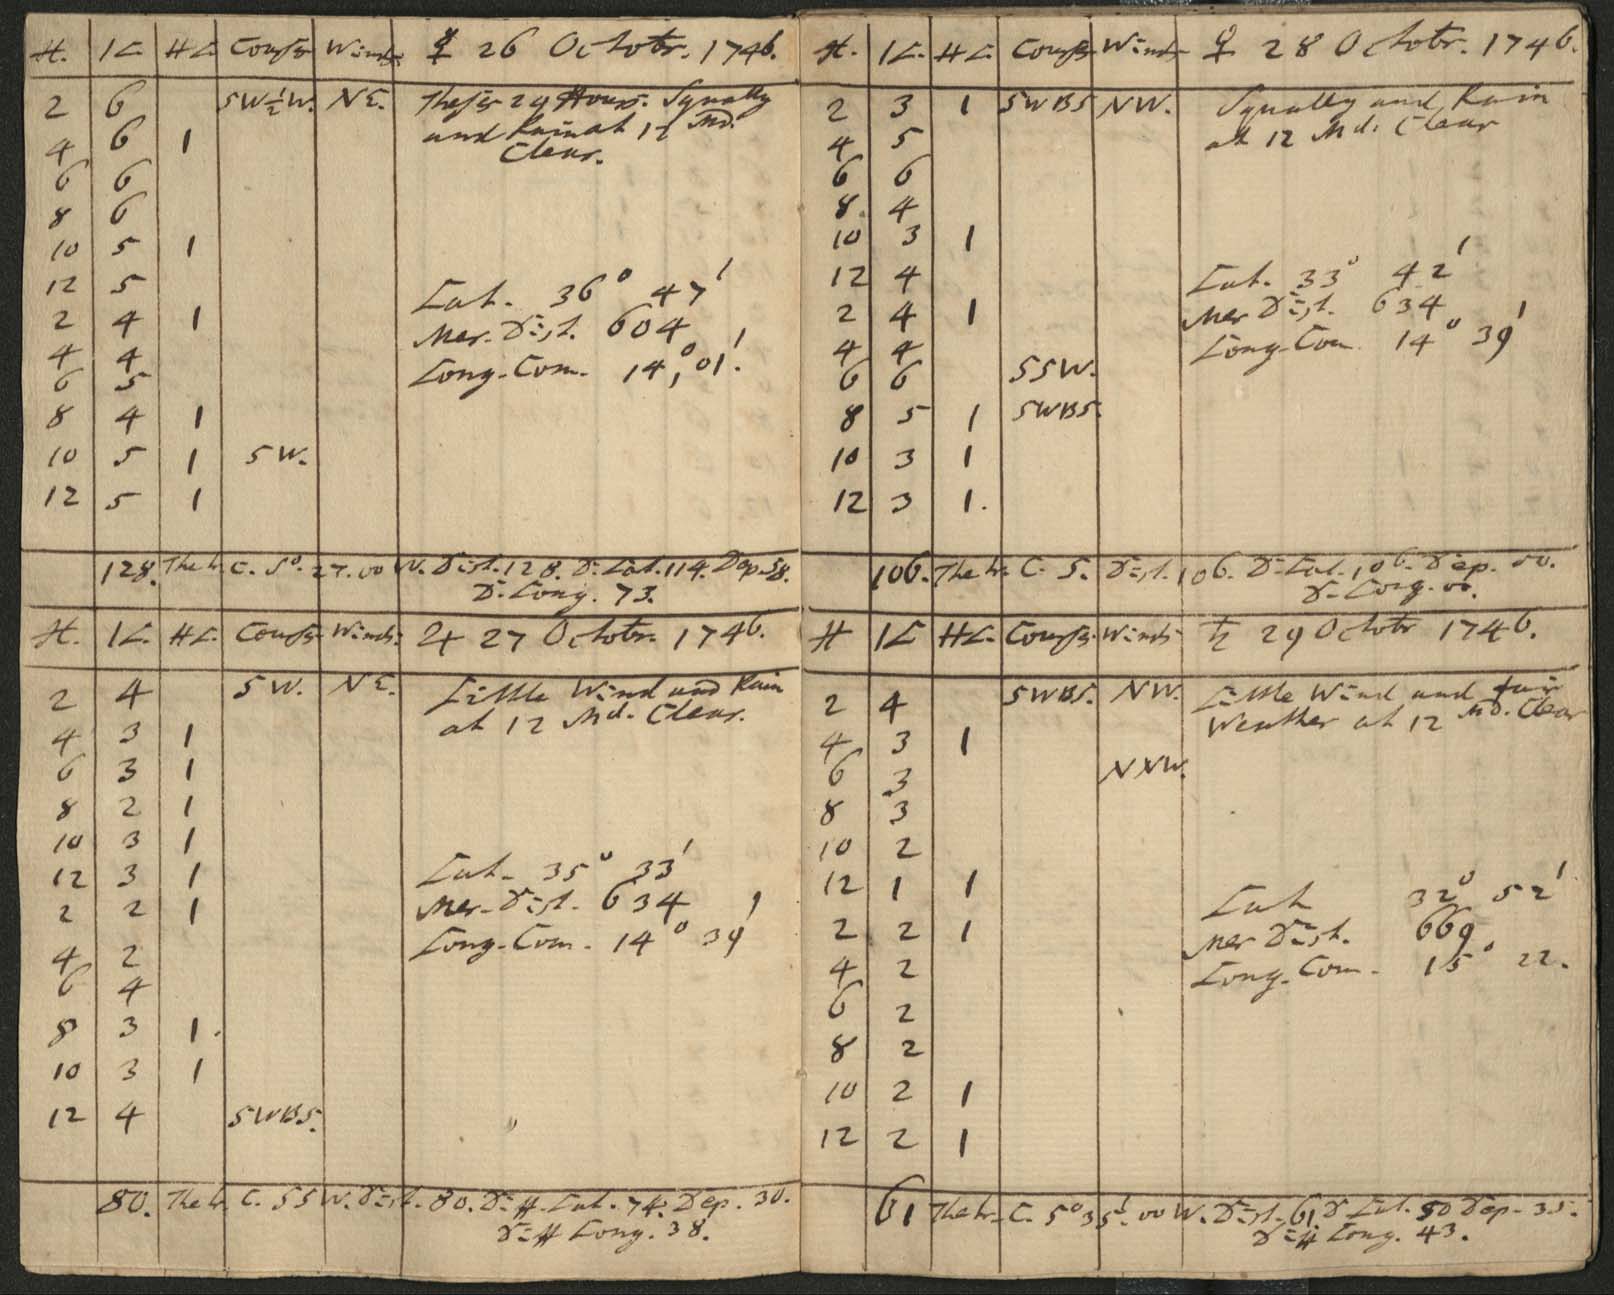 H. K HK Courses Winds ☿ 26 Octobr. 1746.
2 6 SW½W. NE. These 24 Hours. Squally
4 6 1 and Rain at 12 Md.
Clear.
6 6
8 6
10 5 1
12 5 Lat. 36° 47'
2 4 1 Mer. Dist. 604
4 4 Long. Com. 14,° 01'.
6 5
8 4 1
10 5 1 SW.
12 5 1
128. The tr. C. S°. 27.00 W. Dist. 128. D. Lat. 114. Dep. 58.
D. Long. 73.
H. K. HK. Courses Winds. ♃ 27 Octobr. 1746.
2 4 SW. NE. Little Wind and Rain
4 3 1 at 12 Md. Clear.
6 3 1
8 2 1
10 3 1
12 3 1 Lat. 35° 33'
2 2 1 Mer. Dist. 634
4 2 Long. Com. 14° 39'
6 4
8 3 1.
10 3 1
12 4 SWBS.
80. The tr. C. SSW. Dist. 80. Diff. Lat. 74. Dep. 30.
Diff Long. 38.
H. K. HK. Courses Winds ♀ 28 Octobr. 1746.
2 3 1 SWBS NW. Squally and Rain
4 5 at 12 Md. Clear
6 6
8 4
10 3 1
12 4 Lat. 33° 42'
2 4 1 Mer Dist. 634
4 4 Long. Com. 14° 39'
6 6 SSW.
8 5 1 SWBS.
10 3 1
12 3 1.
106. The tr. C. S. Dist. 106. D. Lat. 106. Dep. 00.
D. Long. 00.
H K HK. Courses Winds ♄ 29 Octobr 1746.
2 4 SWBS. NW. Little Wind and fair
4 3 1 Weather at 12 Md. Clear
6 3 NNW.
8 3
10 2
12 1 1 Lat 32° 52'
2 2 1 Mer Dist. 669
4 2 Long. Com. 15° 22.
6 2
8 2
10 2 1
12 2 1
61 The tr. C. S° 35'.00 W. Dist. 61 D Lat. 50 Dep. 35.
Diff Long. 43.